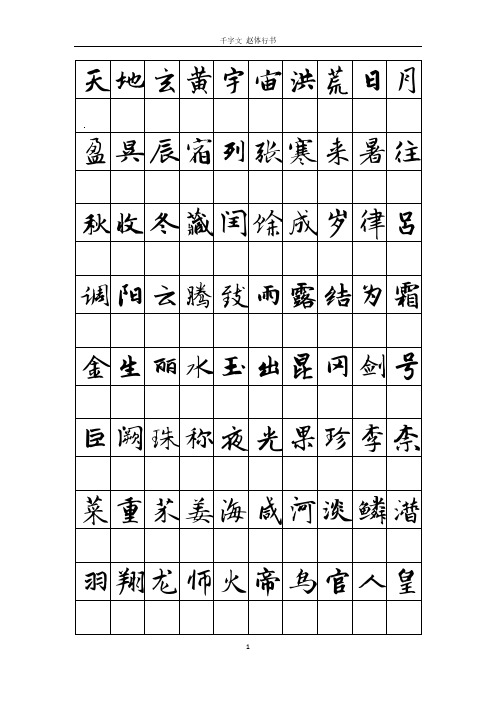 千字文 赵体行书
天地玄黄宇宙洪荒日月
盈昃辰宿列张寒来暑往
秋收冬藏闰馀成岁律吕
调阳云腾致雨露结为霜
金生丽水玉出昆冈剑号
巨阙珠称夜光果珍李柰
菜重芥姜海咸河淡鳞潜
羽翔龙师火帝鸟官人皇
1